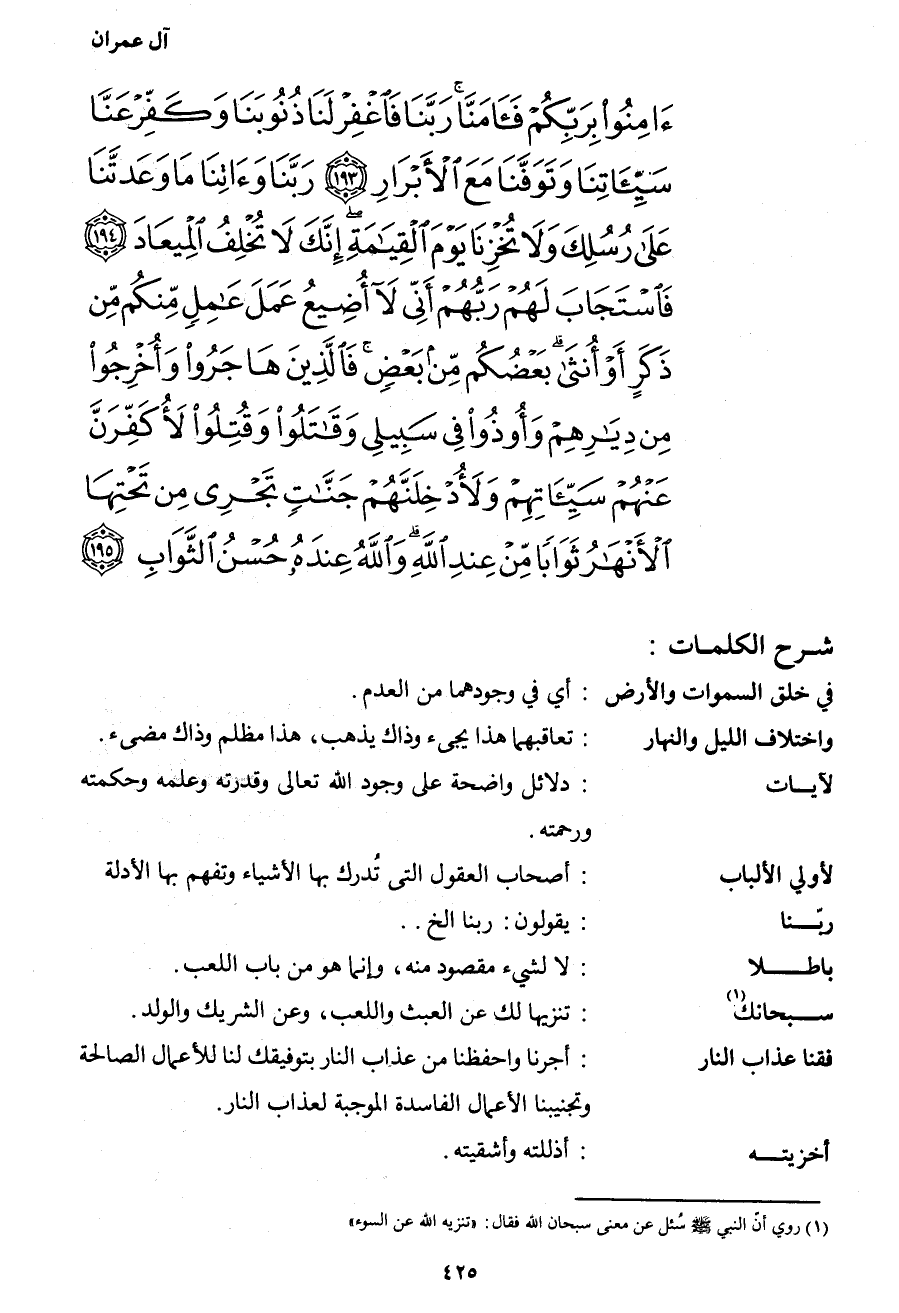 آل عمران
ءَامِنُوا۟ بِرَبِّكُمْ فَـَٔامَنَّا ۚ رَبَّنَا فَٱغْفِرْ لَنَا ذُنُوبَنَا وَكَفِّرْ عَنَّا
سَيِّـَٔاتِنَا وَتَوَفَّنَا مَعَ ٱلْأَبْرَارِ ١٩٣ رَبَّنَا وَءَاتِنَا مَا وَعَدتَّنَا
عَلَىٰ رُسُلِكَ وَلَا تُخْزِنَا يَوْمَ ٱلْقِيَـٰمَةِ ۖ إِنَّكَ لَا تُخْلِفُ ٱلْمِيعَادَ ١٩٤
فَٱسْتَجَابَ لَهُمْ رَبُّهُمْ أَنِّى لَآ أُضِيعُ عَمَلَ عَـٰمِلٍ مِّنكُم مِّن
ذَكَرٍ أَوْ أُنثَىٰ ۖ بَعْضُكُم مِّنۢ بَعْضٍ ۖ فَٱلَّذِينَ هَاجَرُوا۟ وَأُخْرِجُوا۟
مِن دِيَـٰرِهِمْ وَأُوذُوا۟ فِى سَبِيلِى وَقَـٰتَلُوا۟ وَقُتِلُوا۟ لَأُكَفِّرَنَّ
عَنْهُمْ سَيِّـَٔاتِهِمْ وَلَأُدْخِلَنَّهُمْ جَنَّـٰتٍ تَجْرِى مِن تَحْتِهَا
ٱلْأَنْهَـٰرُ ثَوَابًا مِّنْ عِندِ ٱللَّهِ ۗ وَٱللَّهُ عِندَهُۥ حُسْنُ ٱلثَّوَابِ ١٩٥
شـرح الكلمـات :
في خلق السموات والأرض : أي في وجودهما من العدم .
واختلاف الليل والنهار : تعاقبهما هذا يجيء وذاك يذهب، هذا مظلم وذاك مضيء.
لآيـات : دلائل واضحة على وجود الله تعالى وقدرته وعلمه وحكمته
ورحمته .
لأولي الألباب : أصحاب العقول التى تُدرك بها الأشياء وتفهم بها الأدلة
ربّـــنا : يقولون: ربنا الخ . .
باطـــلا : لا لشيء مقصود منه، وإنما هو من باب اللعب.
ســـبحانك(١) : تنزيها لك عن العبث واللعب، وعن الشريك والولد.
فقنا عذاب النار : أجرنا واحفظنا من عذاب النار بتوفيقك لنا للأعمال الصالحة
وتجنيبنا الأعمال الفاسدة الموجبة لعذاب النار.
أخزيتـــه : أذللته وأشقيته .
(١) روي أنّ النبي ﷺ سُئل عن معنى سبحان الله فقال: «تنزيه الله عن السوء»
٤٢٥